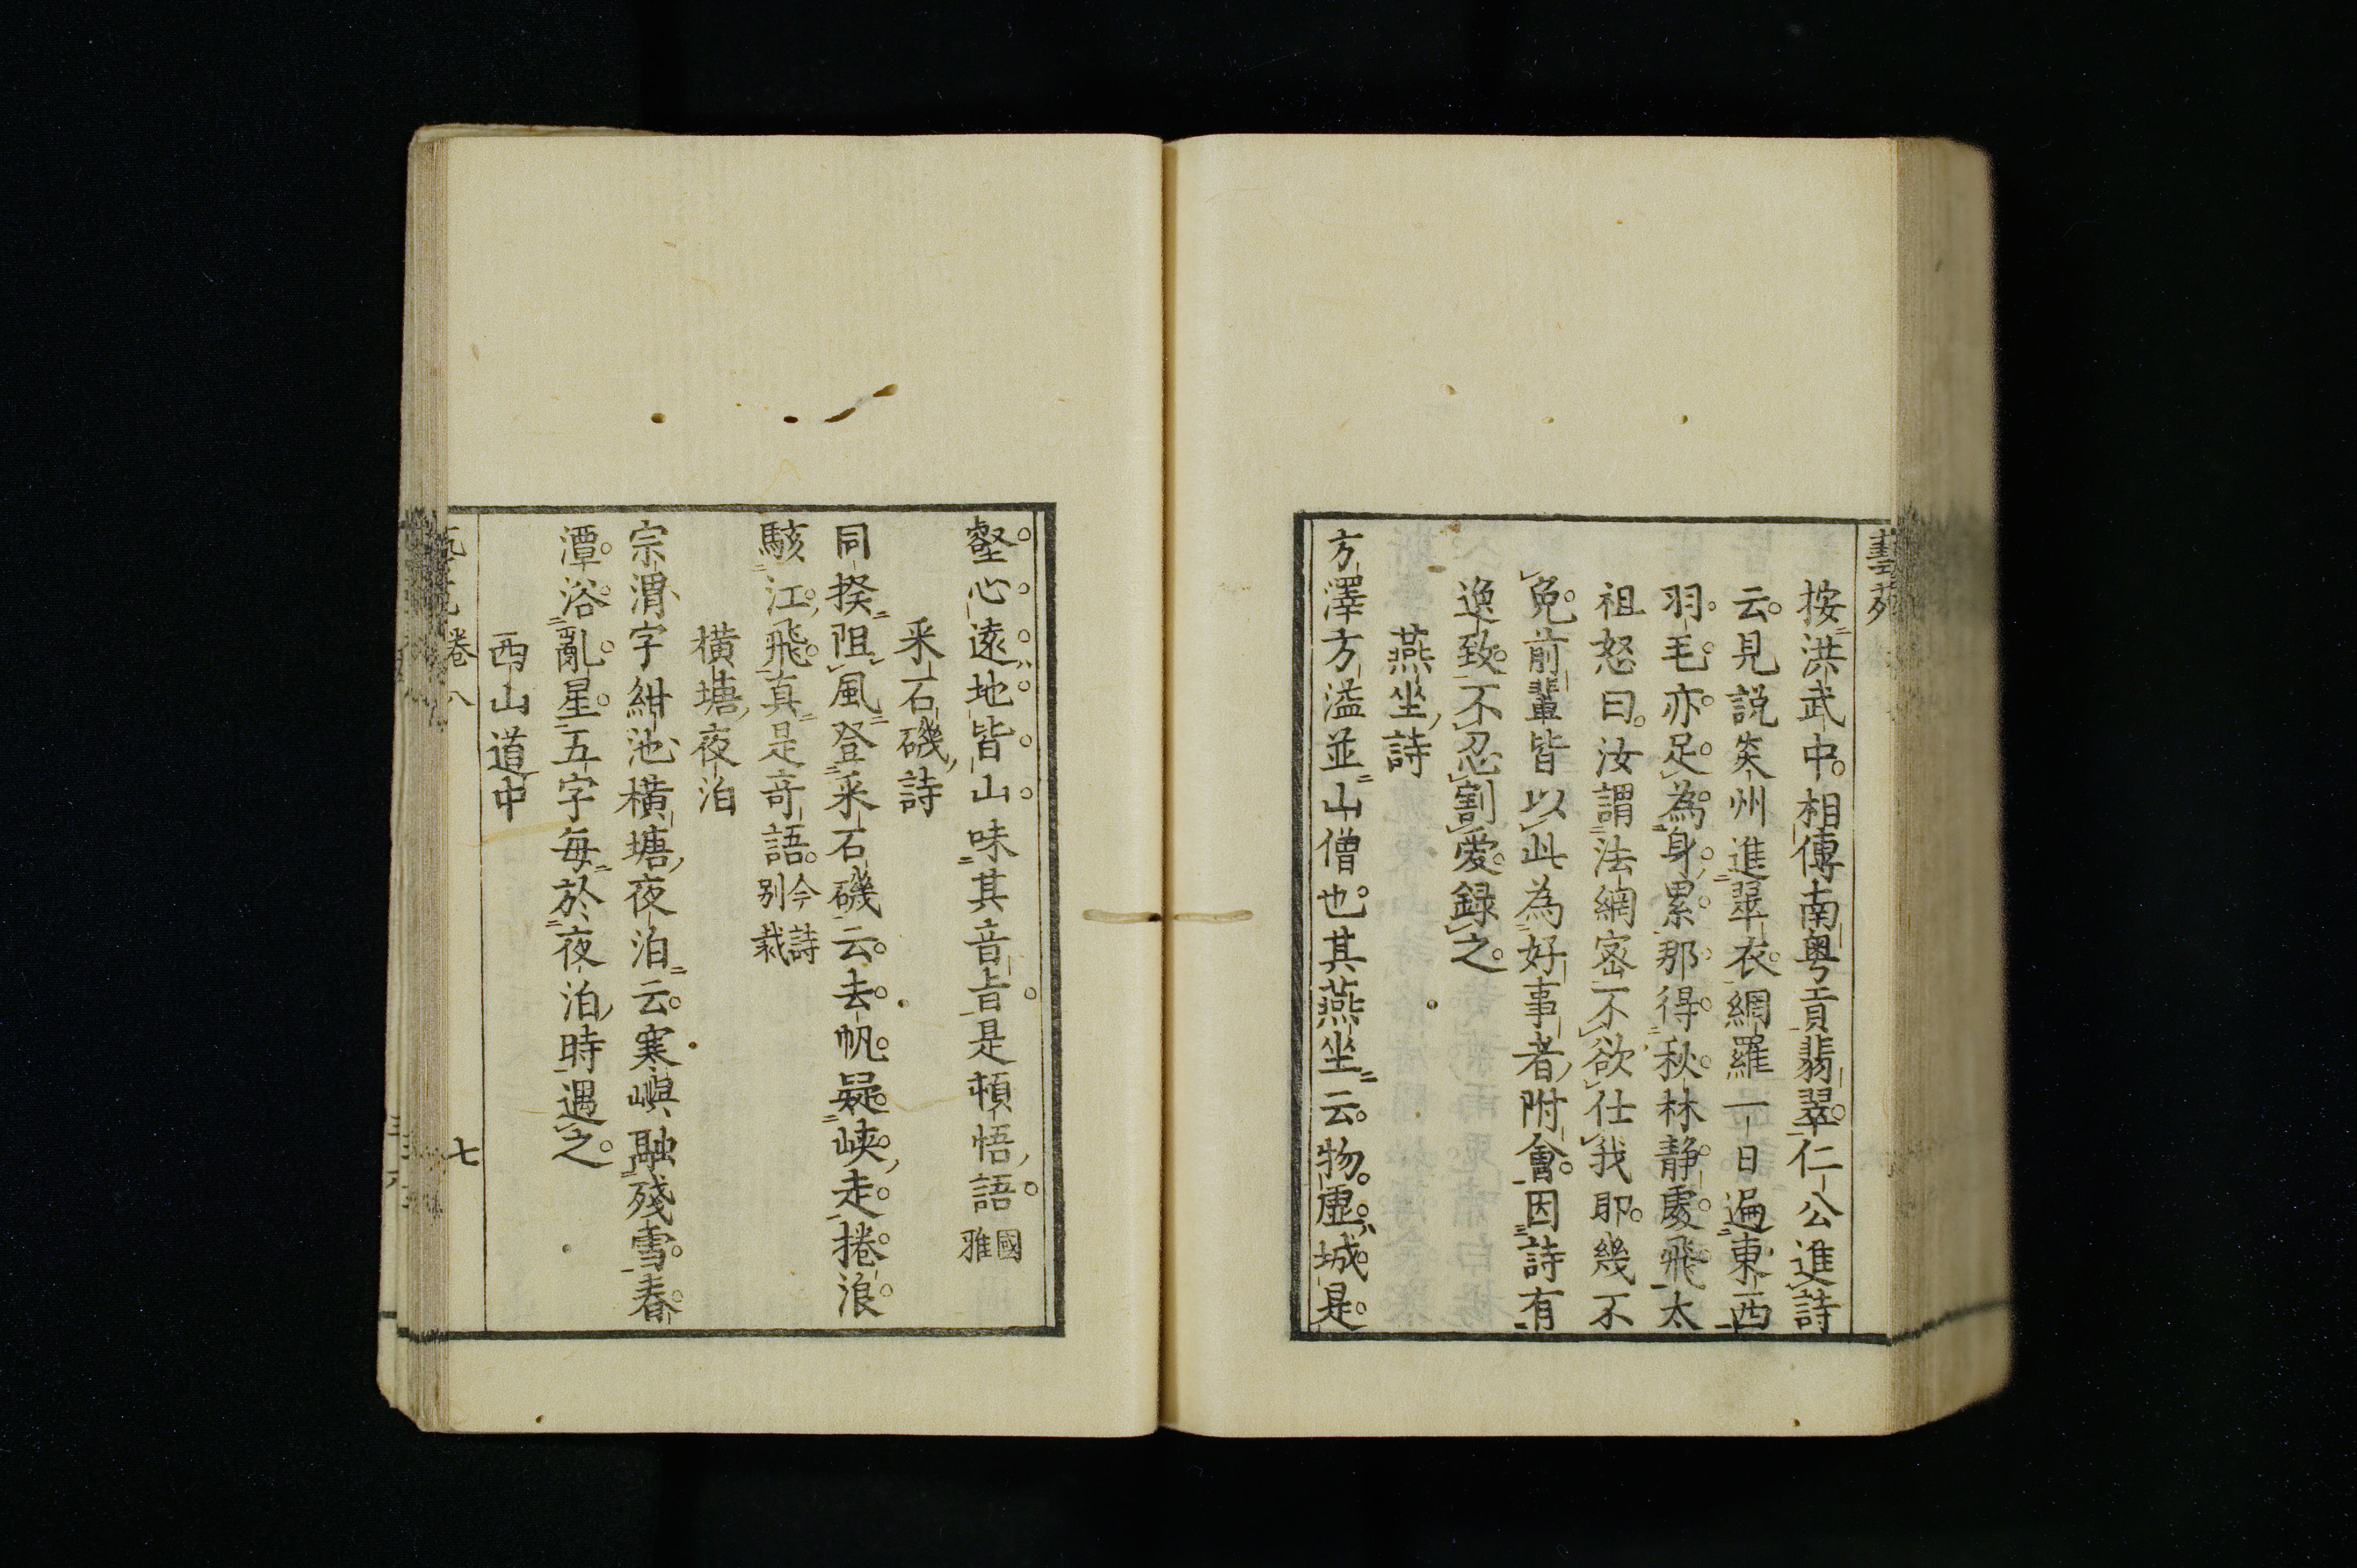 藝苑
按洪武中相傳南粤貢翡翠仁公進詩
云見説炎州進翠衣網羅一日遍東西
羽毛亦足為身累那得秋林静處飛太
祖怒曰汝謂法網密不欲仕我耶幾不
免前輩皆以此為好事者附會因詩有
逸致不忍割愛録之
燕坐詩
方澤方溢並山僧也其燕坐云物虛城是
壑心遠地皆山味其音旨是頓悟語國雅
釆石磯詩
同揆阻風登釆石磯云去帆疑峽走捲浪
駭江飛真是竒語今詩别裁
橫塘夜泊
宗渭字紺池橫塘夜泊云寒嶼融殘雪春
潭浴亂星五字每於夜泊時遇之
西山道中
卷八
七